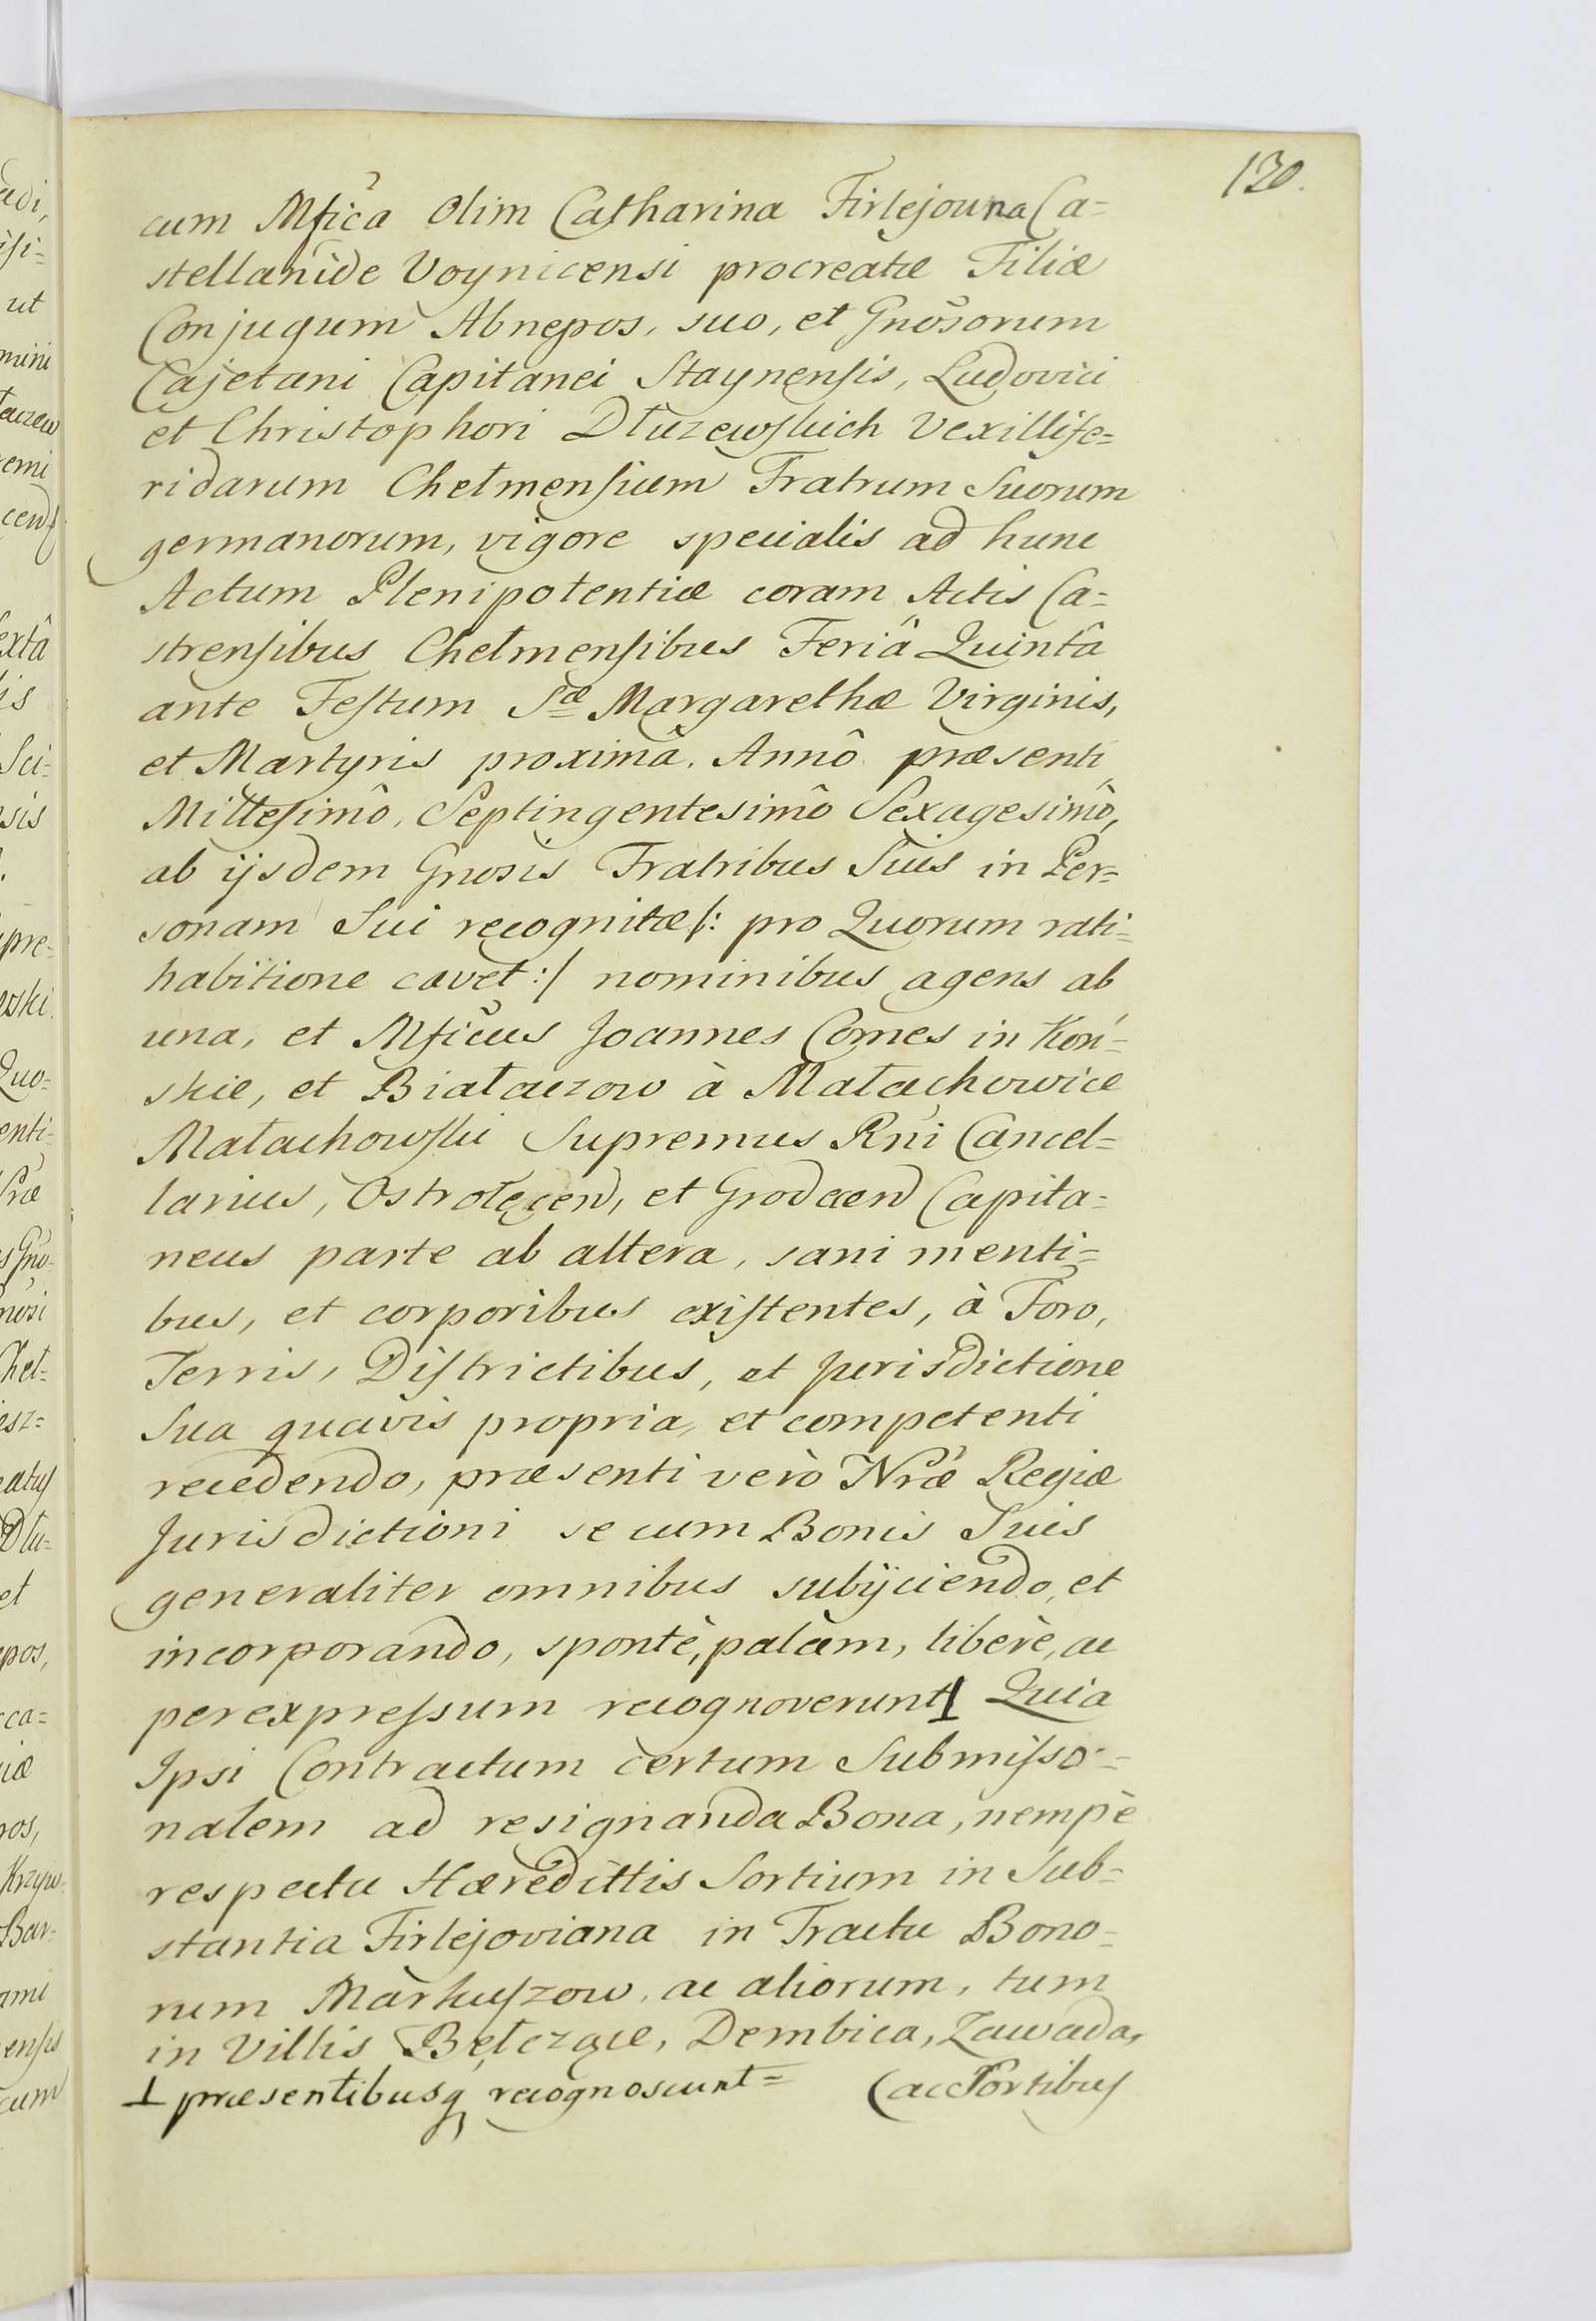 130.
cum Mfica Olim Catharina Firlejouna Ca=
stellanide Voynicensi procreatæ Filiæ
Conjugum Abnepos, suo, et Gnosorum
Cajetani Capitanei Staynensis, Ludovici
et Christophori Dłuzewskich Vexillife=
ridarum Chełmensium Fratrum Suorum
germanorum, vigore specialis ad hunc
Actum Plenipotentiæ coram Actis Ca=
strensibus Chełmensibus Feriâ Quintâ
ante Festum Sæ Margarethæ Virginis,
et Martyris proximâ. Annô præsenti
Millesimô, Septingentesimô Sexagesimô,
ab ijsdem Gnosis Fratribus Suis in Per=
sonam Sui recognitæ/: pro Quorum rati=
habitione cavet:/ nominibus agens ab
una, et Mficus Joannes Comes in Koń=
skie, et Białaczow à Małachowice
Małachowski Supremus Rni Cancel=
larius, Ostrołęcen, et Grodecen Capita=
neus parte ab altera, sani menti=
bus, et corporibus existentes, à Foro,
Terris, Districtibus, et Jurisdictione
Sua quavis propria, et competenti
recedendo, præsenti verò Nræ Regiæ
Jurisdictioni se cum Bonis Suis
generaliter omnibus subijciendo, et
incorporando, spontè, palàm, liberè, ac
perexpressum recognoverunt ⊥ Quia
Ipsi Contractum certum Submisso=
nalem ad resignanda Bona, nempè
respectu Hæredittis Sortium in Sub=
stantia Firlejoviana in Tractu Bono=
rum Markuszow, ac aliorum, tum
in Villis Bełczące, Dembica, Zawada,
⊥ præsentibusq recognoscunt=
(ac Sortibus